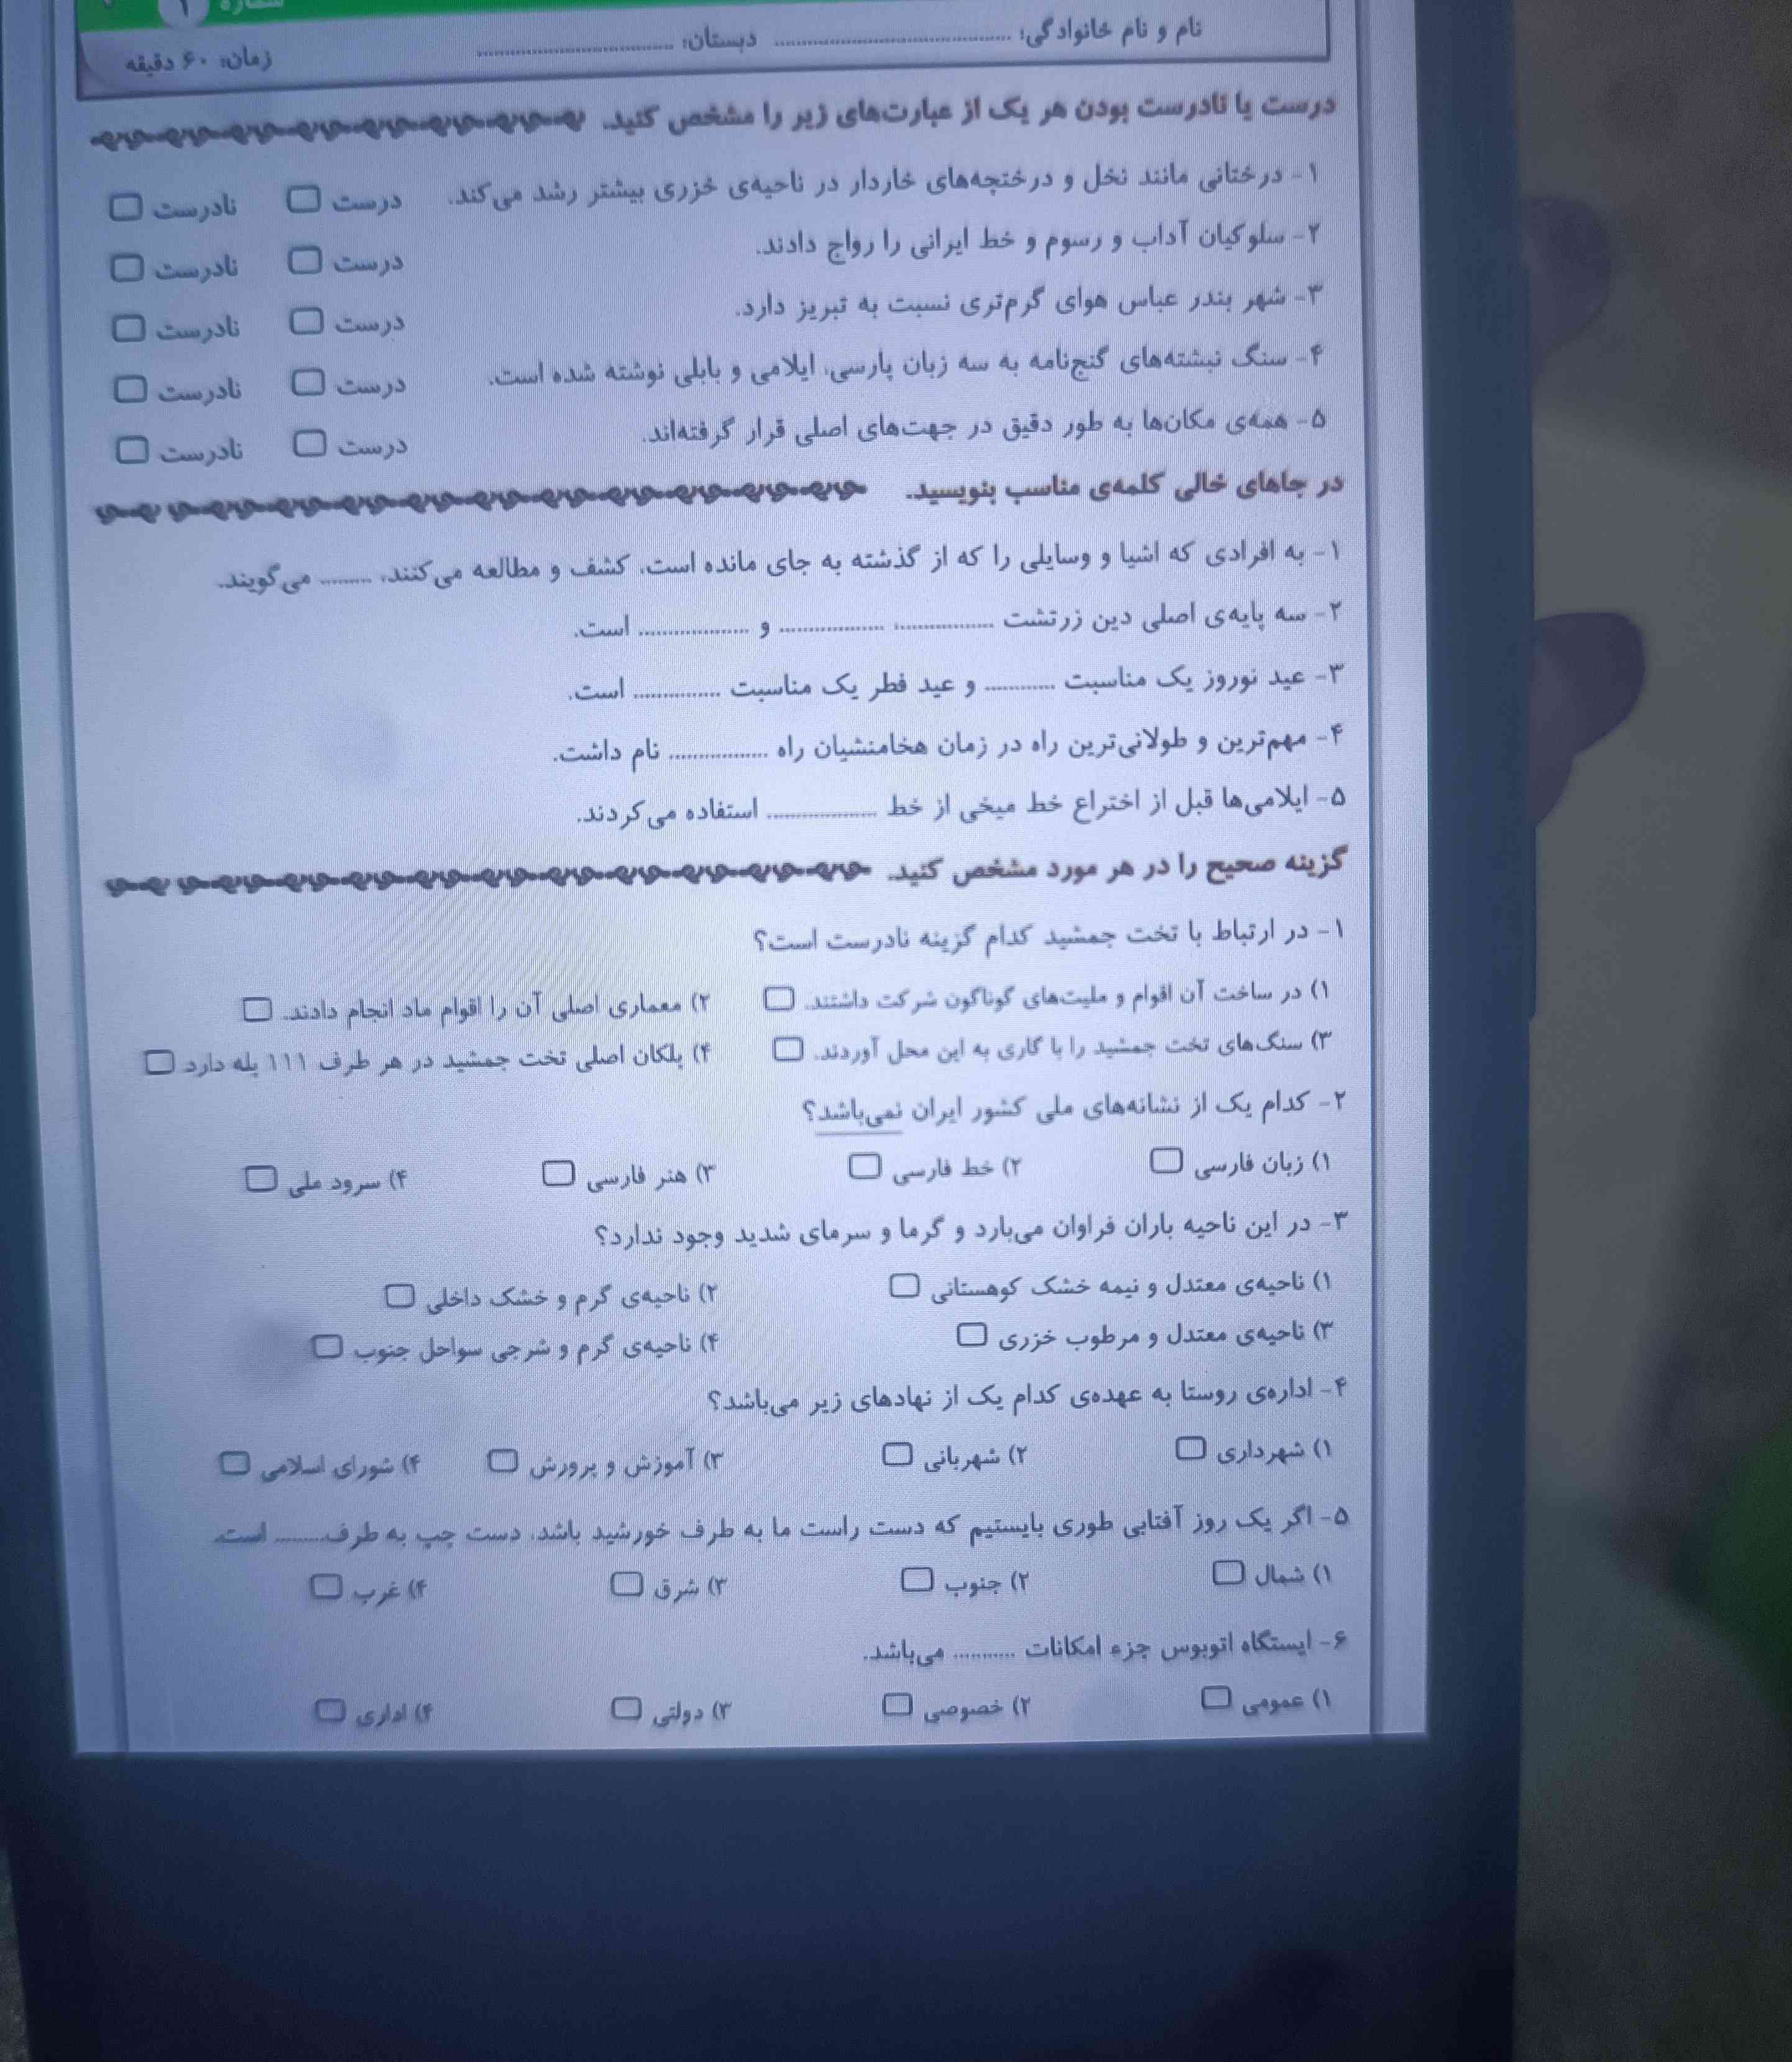 شماره ۱
نام و نام خانوادگی: ........................................ دبستان: ........................................ زمان: ۶۰ دقیقه
درست یا نادرست بودن هر یک از عبارت‌های زیر را مشخص کنید.
۱- درختانی مانند نخل و درختچه‌های خاردار در ناحیه‌ی خزری بیشتر رشد می‌کند. درست نادرست
۲- سلوکیان آداب و رسوم و خط ایرانی را رواج دادند. درست نادرست
۳- شهر بندر عباس هوای گرم‌تری نسبت به تبریز دارد. درست نادرست
۴- سنگ نبشته‌های گنج‌نامه به سه زبان پارسی، ایلامی و بابلی نوشته شده است. درست نادرست
۵- همه‌ی مکان‌ها به طور دقیق در جهت‌های اصلی قرار گرفته‌اند. درست نادرست
در جاهای خالی کلمه‌ی مناسب بنویسید.
۱- به افرادی که اشیا و وسایلی را که از گذشته به جای مانده است، کشف و مطالعه می‌کنند، .......... می‌گویند.
۲- سه پایه‌ی اصلی دین زرتشت ..................، .................... و .................... است.
۳- عید نوروز یک مناسبت ............. و عید فطر یک مناسبت ................ است.
۴- مهم‌ترین و طولانی‌ترین راه در زمان هخامنشیان راه .................. نام داشت.
۵- ایلامی‌ها قبل از اختراع خط میخی از خط .................... استفاده می‌کردند.
گزینه صحیح را در هر مورد مشخص کنید.
۱- در ارتباط با تخت جمشید کدام گزینه نادرست است؟
۱) در ساخت آن اقوام و ملیت‌های گوناگون شرکت داشتند. ۲) معماری اصلی آن را اقوام ماد انجام دادند.
۳) سنگ‌های تخت جمشید را با گاری به این محل آوردند. ۴) پلکان اصلی تخت جمشید در هر طرف ۱۱۱ پله دارد
۲- کدام یک از نشانه‌های ملی کشور ایران نمی‌باشد؟
۱) زبان فارسی ۲) خط فارسی ۳) هنر فارسی ۴) سرود ملی
۳- در این ناحیه باران فراوان می‌بارد و گرما و سرمای شدید وجود ندارد؟
۱) ناحیه‌ی معتدل و نیمه خشک کوهستانی ۲) ناحیه‌ی گرم و خشک داخلی
۳) ناحیه‌ی معتدل و مرطوب خزری ۴) ناحیه‌ی گرم و شرجی سواحل جنوب
۴- اداره‌ی روستا به عهده‌ی کدام یک از نهادهای زیر می‌باشد؟
۱) شهرداری ۲) شهربانی ۳) آموزش و پرورش ۴) شورای اسلامی
۵- اگر یک روز آفتابی طوری بایستیم که دست راست ما به طرف خورشید باشد، دست چپ به طرف......... است.
۱) شمال ۲) جنوب ۳) شرق ۴) غرب
۶- ایستگاه اتوبوس جزء امکانات ........... می‌باشد.
۱) عمومی ۲) خصوصی ۳) دولتی ۴) اداری